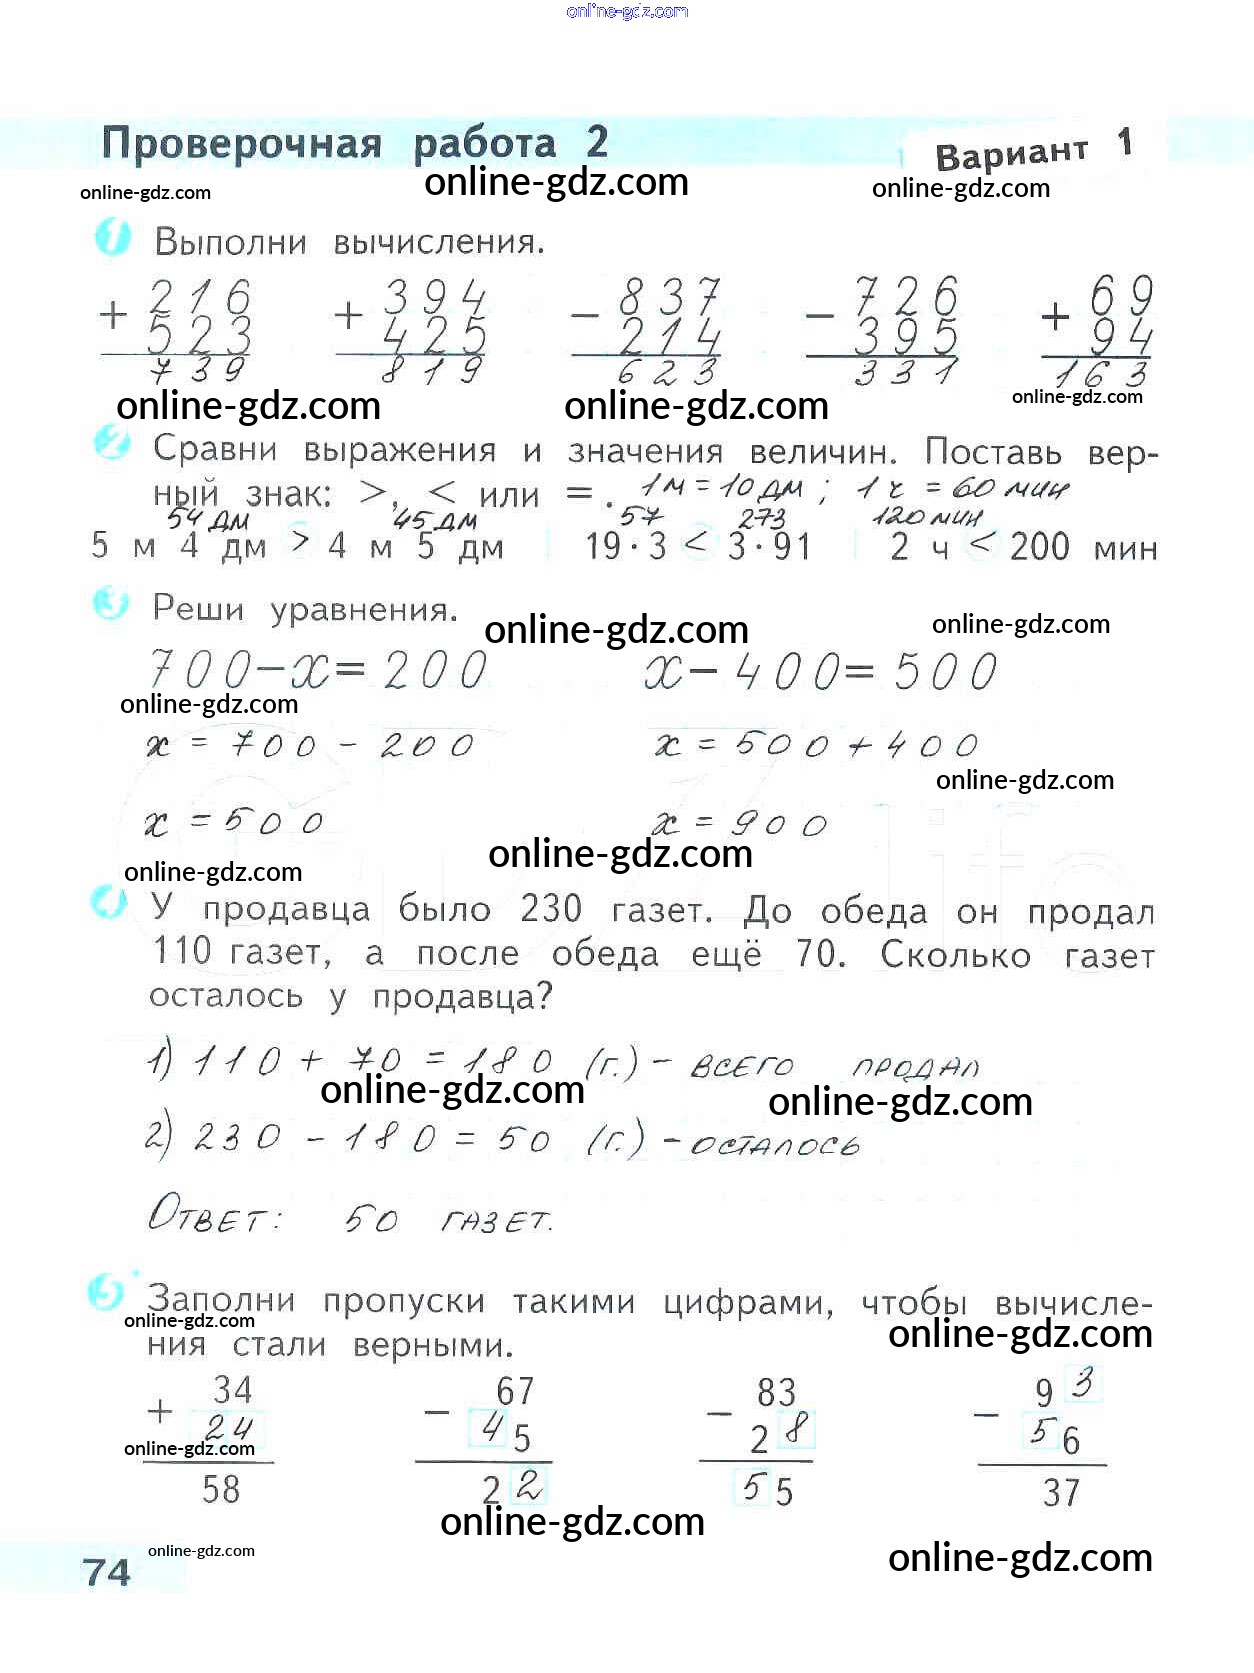 online-gdz.com
Проверочная работа 2 Вариант 1
online-gdz.com online-gdz.com online-gdz.com
1 Выполни вычисления.
+ 216 + 394 - 837 - 726 + 69
523 425 214 395 94
739 819 623 331 163
online-gdz.com online-gdz.com online-gdz.com
2 Сравни выражения и значения величин. Поставь вер-
ный знак: >, < или = . 1 м = 10 дм ; 1 ч = 60 мин
54 дм 45 дм 57 273 120 мин
5 м 4 дм > 4 м 5 дм 19 · 3 < 3 · 91 2 ч < 200 мин
3 Реши уравнения.
online-gdz.com online-gdz.com
700-x=200 x-400=500
online-gdz.com
x = 700 - 200 x = 500 + 400
online-gdz.com
x = 500 x = 900
online-gdz.com
online-gdz.com
4 У продавца было 230 газет. До обеда он продал
110 газет, а после обеда ещё 70. Сколько газет
осталось у продавца?
1) 110 + 70 = 180 (г.) - всего продал
online-gdz.com online-gdz.com
2) 230 - 180 = 50 (г.) - осталось
Ответ: 50 газет.
5 Заполни пропуски такими цифрами, чтобы вычисле-
online-gdz.com online-gdz.com
ния стали верными.
+ 34 - 67 - 83 - 93
24 45 28 56
online-gdz.com
58 22 55 37
online-gdz.com
74 online-gdz.com online-gdz.com